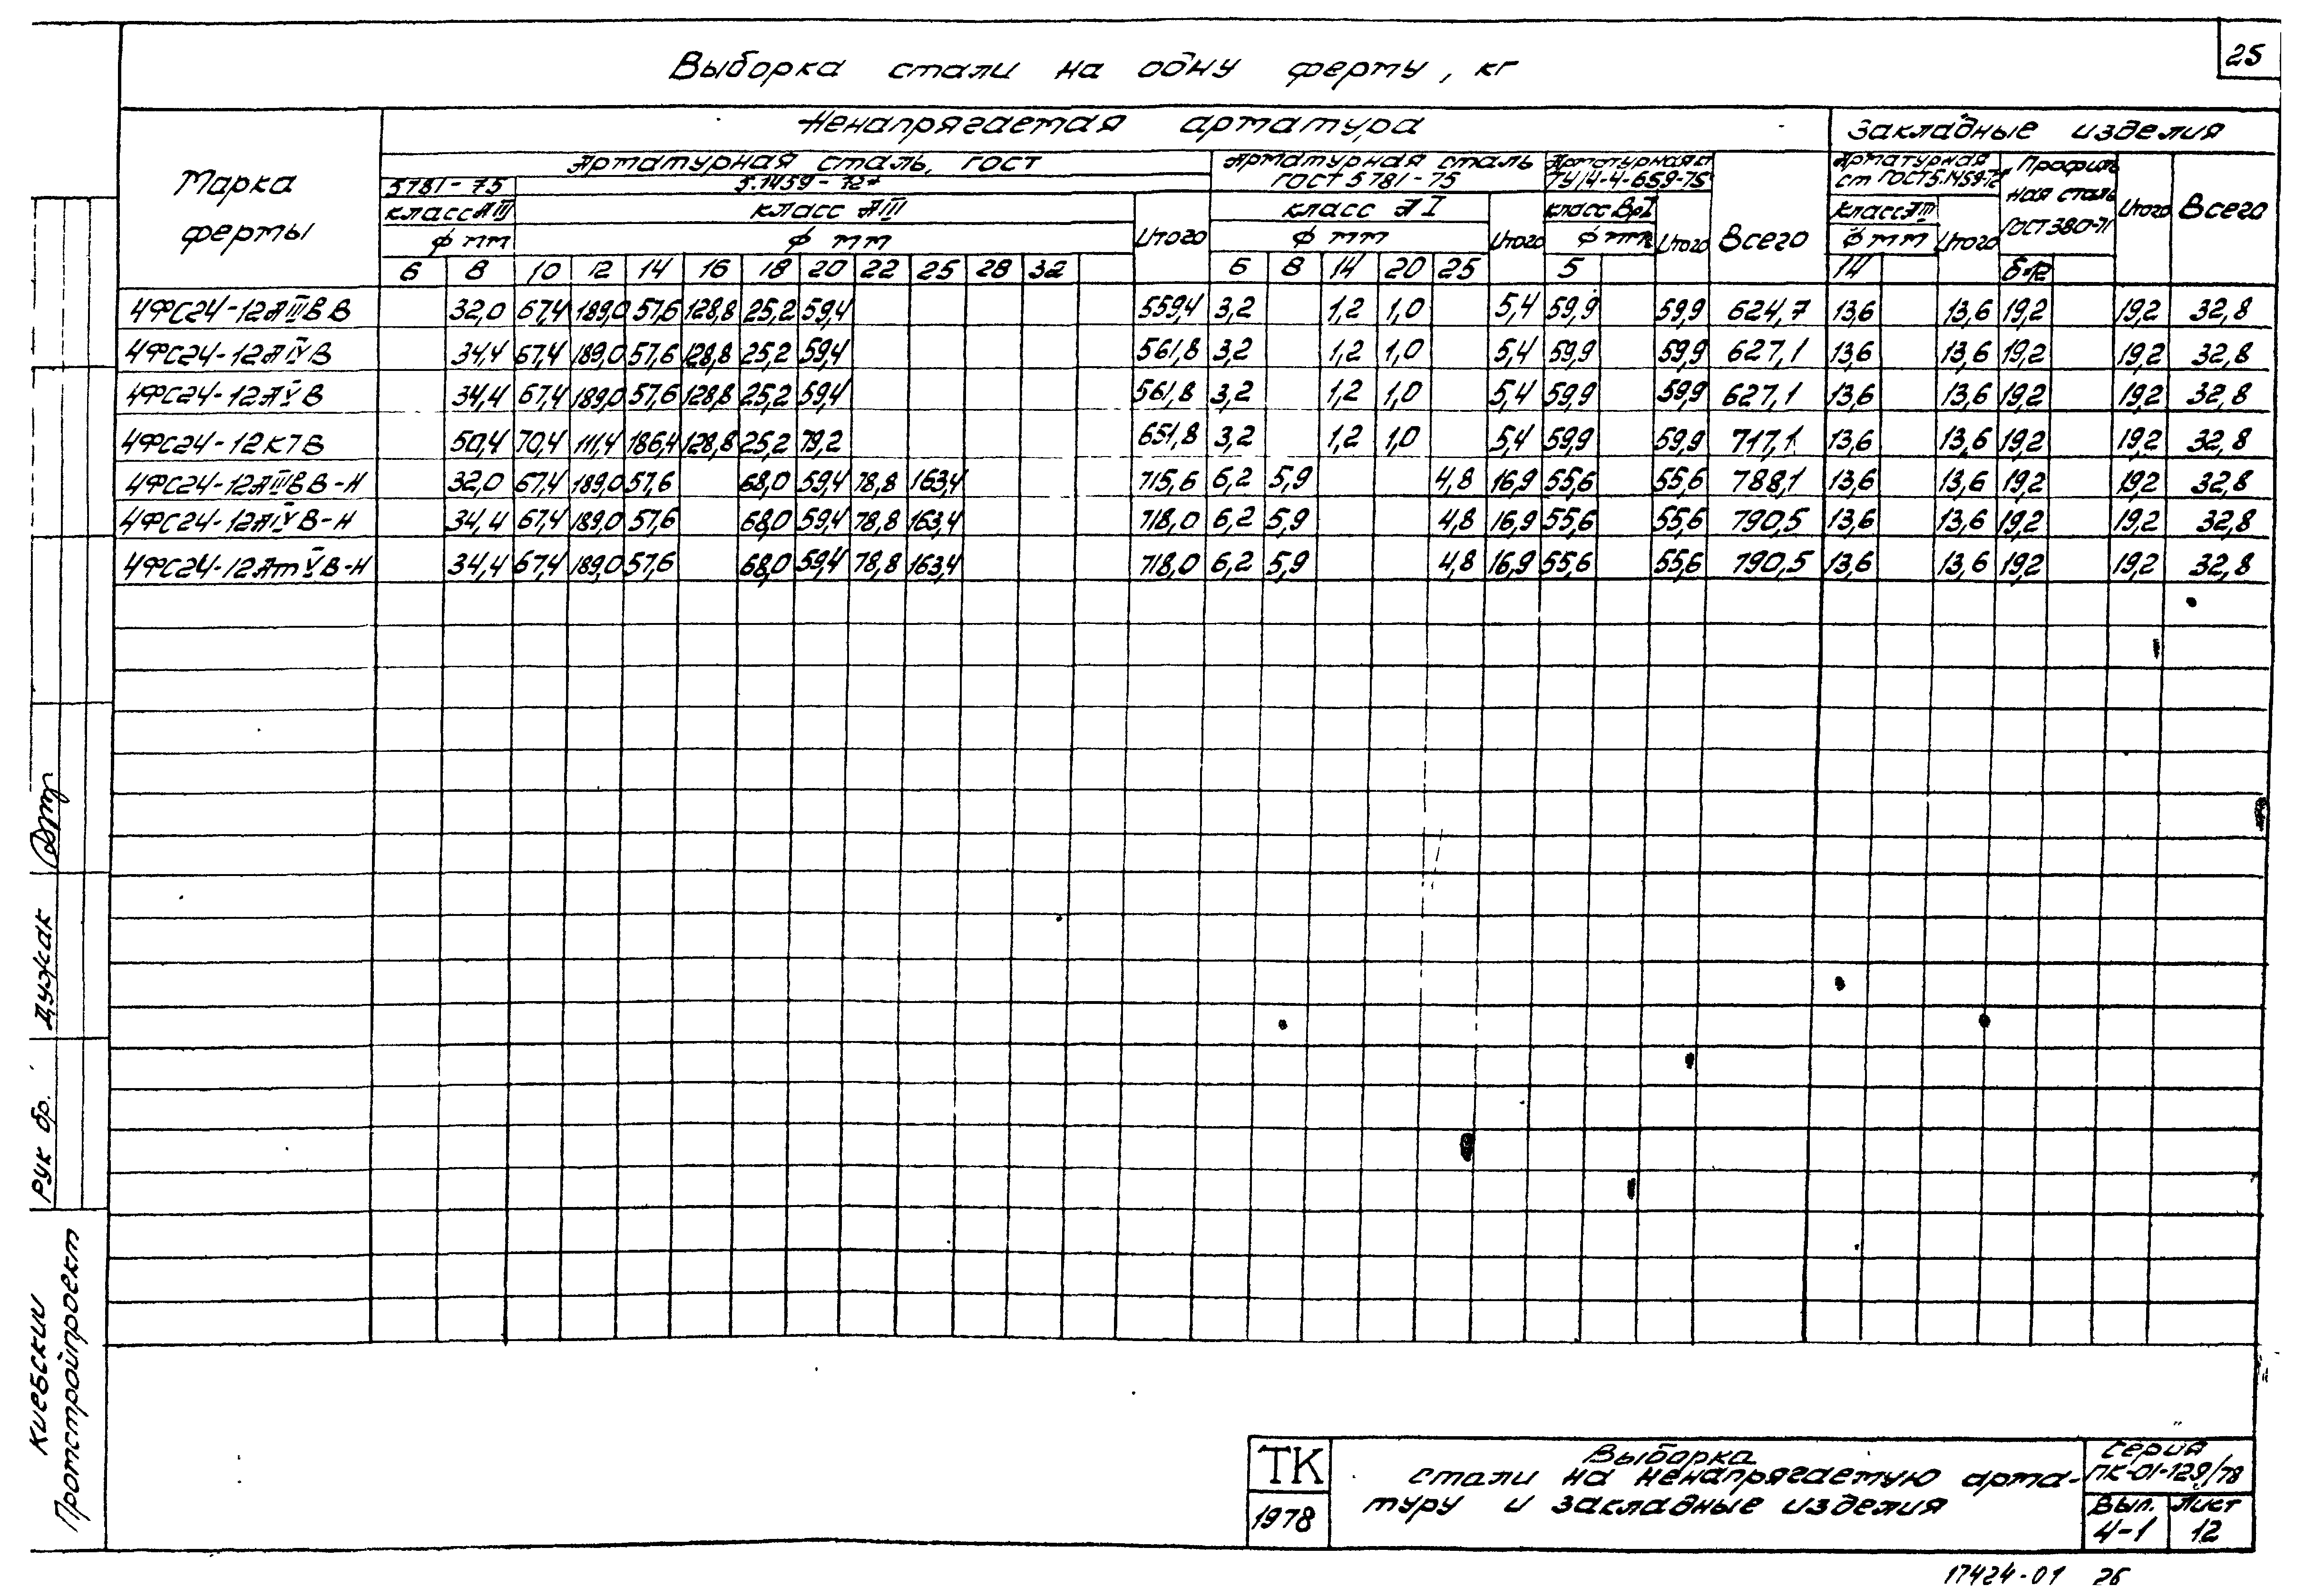 25
Выборка стали на одну ферму, кг
Марка фермы
Ненапрягаемая арматура
Закладные изделия
Арматурная сталь, ГОСТ
Арматурная сталь ГОСТ 5781-75
Арматурная ст ТУ14-4-659-75
Всего
Арматурная ст ГОСТ5.1459-72*
Профильная сталь ГОСТ380-71
Итого
Всего
5781-75
5.1459-72*
класс АIII
класс АIII
Итого
класс АI
Итого
класс ВрI
Итого
класс АIII
Итого
ф мм
ф мм
ф мм
ф мм
ф мм
6 8 10 12 14 16 18 20 22 25 28 32 6 8 14 20 25 5 14 δ-12
4ФС24-12АIIIВВ 32,0 67,4 189,0 57,6 128,8 25,2 59,4 559,4 3,2 1,2 1,0 5,4 59,9 59,9 624,7 13,6 13,6 19,2 19,2 32,8
4ФС24-12АIVВ 34,4 67,4 189,0 57,6 128,8 25,2 59,4 561,8 3,2 1,2 1,0 5,4 59,9 59,9 627,1 13,6 13,6 19,2 19,2 32,8
4ФС24-12АVВ 34,4 67,4 189,0 57,6 128,8 25,2 59,4 561,8 3,2 1,2 1,0 5,4 59,9 59,9 627,1 13,6 13,6 19,2 19,2 32,8
4ФС24-12К7В 50,4 70,4 111,4 186,4 128,8 25,2 79,2 651,8 3,2 1,2 1,0 5,4 59,9 59,9 717,1 13,6 13,6 19,2 19,2 32,8
4ФС24-12АIIIВВ-Н 32,0 67,4 189,0 57,6 68,0 59,4 78,8 163,4 715,6 6,2 5,9 4,8 16,9 55,6 55,6 788,1 13,6 13,6 19,2 19,2 32,8
4ФС24-12АIVВ-Н 34,4 67,4 189,0 57,6 68,0 59,4 78,8 163,4 718,0 6,2 5,9 4,8 16,9 55,6 55,6 790,5 13,6 13,6 19,2 19,2 32,8
4ФС24-12АтVВ-Н 34,4 67,4 189,0 57,6 68,0 59,4 78,8 163,4 718,0 6,2 5,9 4,8 16,9 55,6 55,6 790,5 13,6 13,6 19,2 19,2 32,8
Рук бр. Дужак
Киевский
Промстройпроект
ТК
1978
Выборка
стали на ненапрягаемую арма-
туру и закладные изделия
Серия
ПК-01-129/78
Вып. Лист
4-1 12
17424-01 26